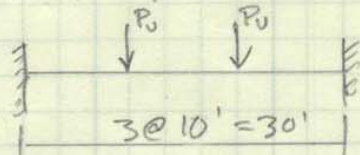 Pu Pu
3@10'=30'